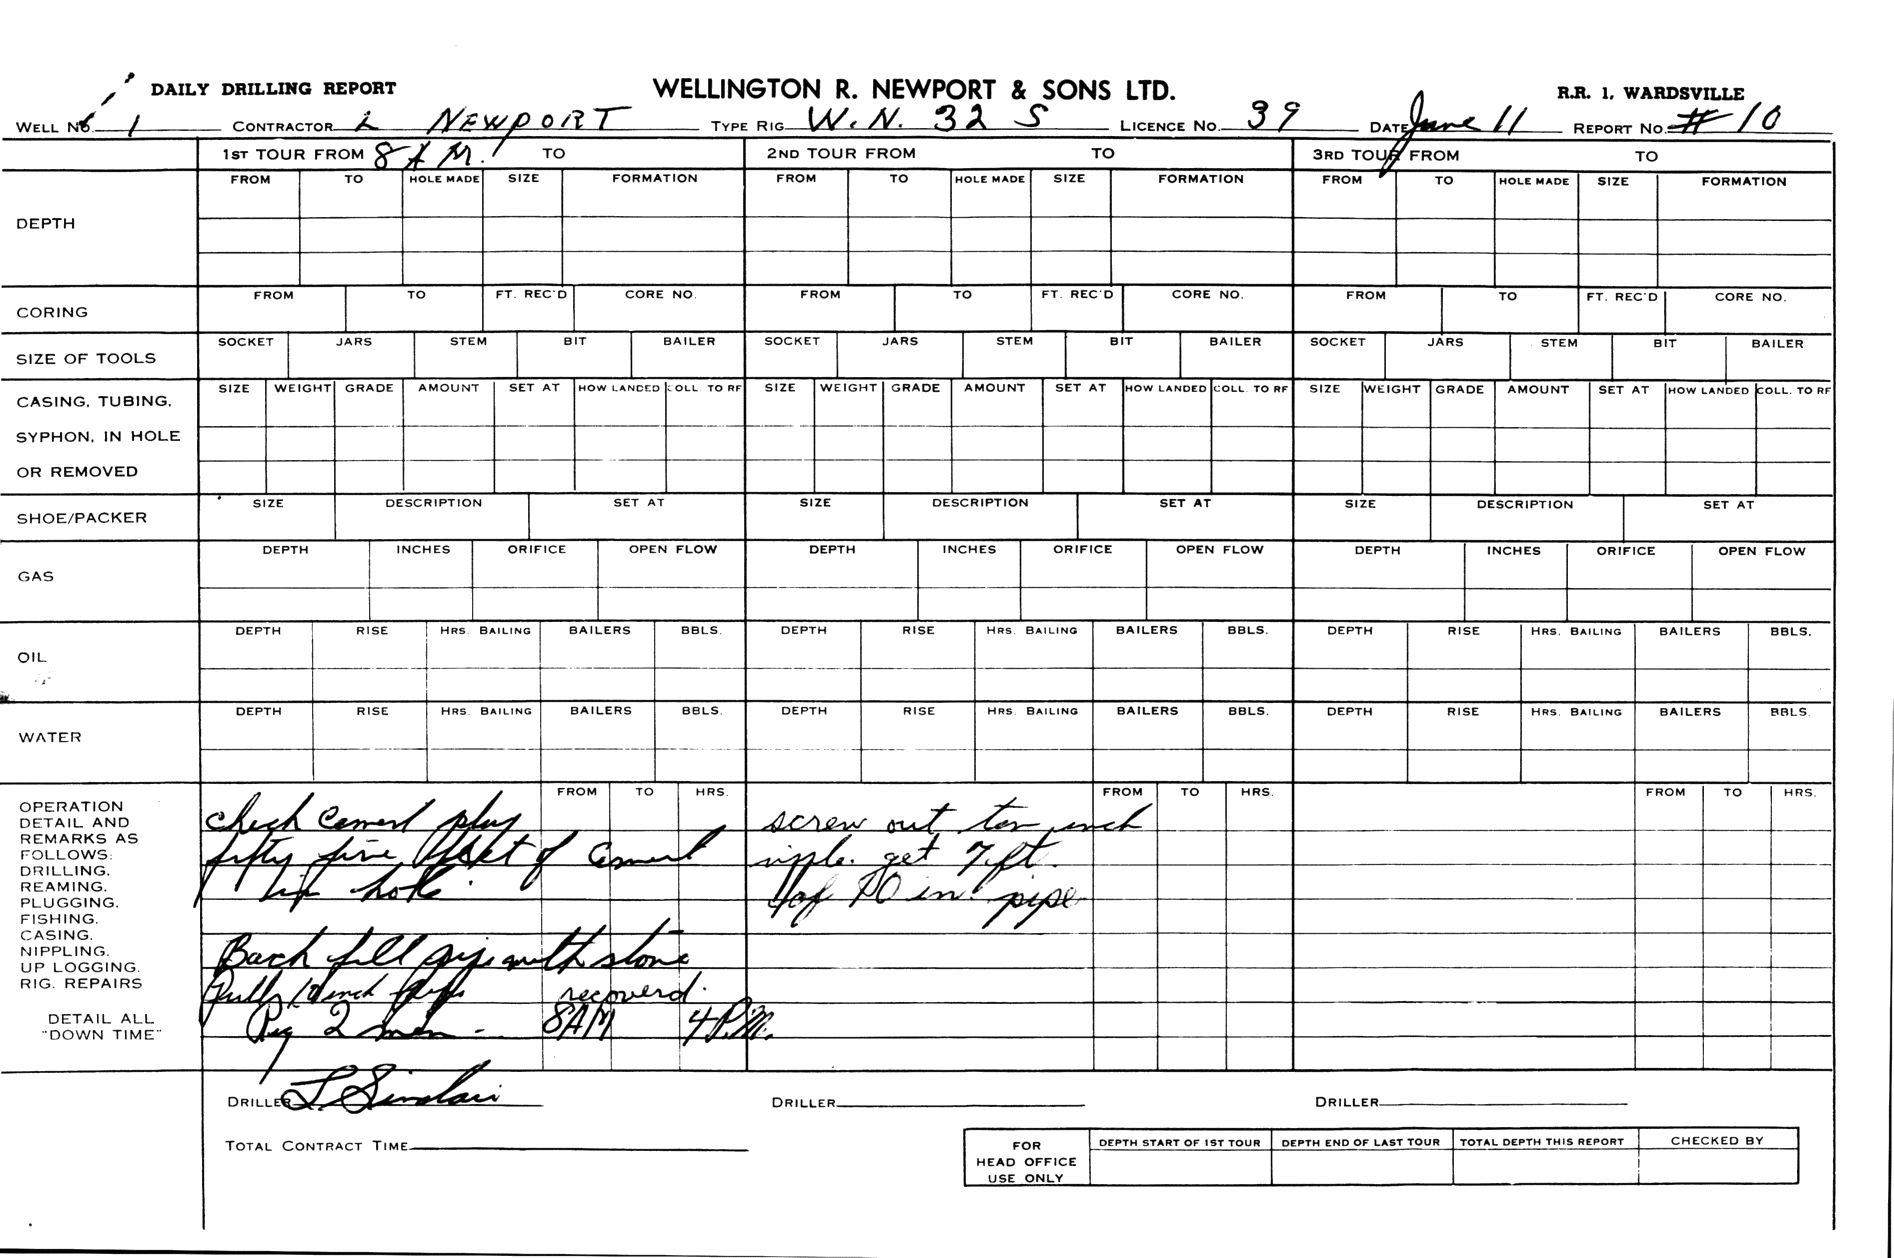 DAILY DRILLING REPORT WELLINGTON R. NEWPORT & SONS LTD. R.R. 1, WARDSVILLE
WELL No. 1 CONTRACTOR L NEWPORT TYPE RIG W.N. 32 S LICENCE No. 39 DATE June 11 REPORT No. # 10
1ST TOUR FROM 8 A M. TO 2ND TOUR FROM TO 3RD TOUR FROM TO
DEPTH FROM TO HOLE MADE SIZE FORMATION FROM TO HOLE MADE SIZE FORMATION FROM TO HOLE MADE SIZE FORMATION
CORING FROM TO FT. REC'D CORE NO. FROM TO FT. REC'D CORE NO. FROM TO FT. REC'D CORE NO.
SIZE OF TOOLS SOCKET JARS STEM BIT BAILER SOCKET JARS STEM BIT BAILER SOCKET JARS STEM BIT BAILER
SIZE WEIGHT GRADE AMOUNT SET AT HOW LANDED COLL. TO RF SIZE WEIGHT GRADE AMOUNT SET AT HOW LANDED COLL. TO RF SIZE WEIGHT GRADE AMOUNT SET AT HOW LANDED COLL. TO RF
CASING, TUBING,
SYPHON, IN HOLE
OR REMOVED
SHOE/PACKER SIZE DESCRIPTION SET AT SIZE DESCRIPTION SET AT SIZE DESCRIPTION SET AT
GAS DEPTH INCHES ORIFICE OPEN FLOW DEPTH INCHES ORIFICE OPEN FLOW DEPTH INCHES ORIFICE OPEN FLOW
OIL DEPTH RISE HRS. BAILING BAILERS BBLS. DEPTH RISE HRS. BAILING BAILERS BBLS. DEPTH RISE HRS. BAILING BAILERS BBLS.
WATER DEPTH RISE HRS. BAILING BAILERS BBLS. DEPTH RISE HRS. BAILING BAILERS BBLS. DEPTH RISE HRS. BAILING BAILERS BBLS.
FROM TO HRS. FROM TO HRS. FROM TO HRS.
OPERATION
DETAIL AND
REMARKS AS
FOLLOWS:
DRILLING,
REAMING,
PLUGGING,
FISHING,
CASING,
NIPPLING,
UP LOGGING,
RIG. REPAIRS
DETAIL ALL
"DOWN TIME"
check cement plug
fifty five feet of cement
in hole.
Back fill pipe with stone
Pulls 10 inch recoverd.
Rig 2 men - 8AM 4 P.M.
screw out ten inch
get 7 ft.
of 10 in. pipe
DRILLER L Sinclair DRILLER DRILLER
TOTAL CONTRACT TIME
FOR
HEAD OFFICE
USE ONLY
DEPTH START OF 1ST TOUR DEPTH END OF LAST TOUR TOTAL DEPTH THIS REPORT CHECKED BY